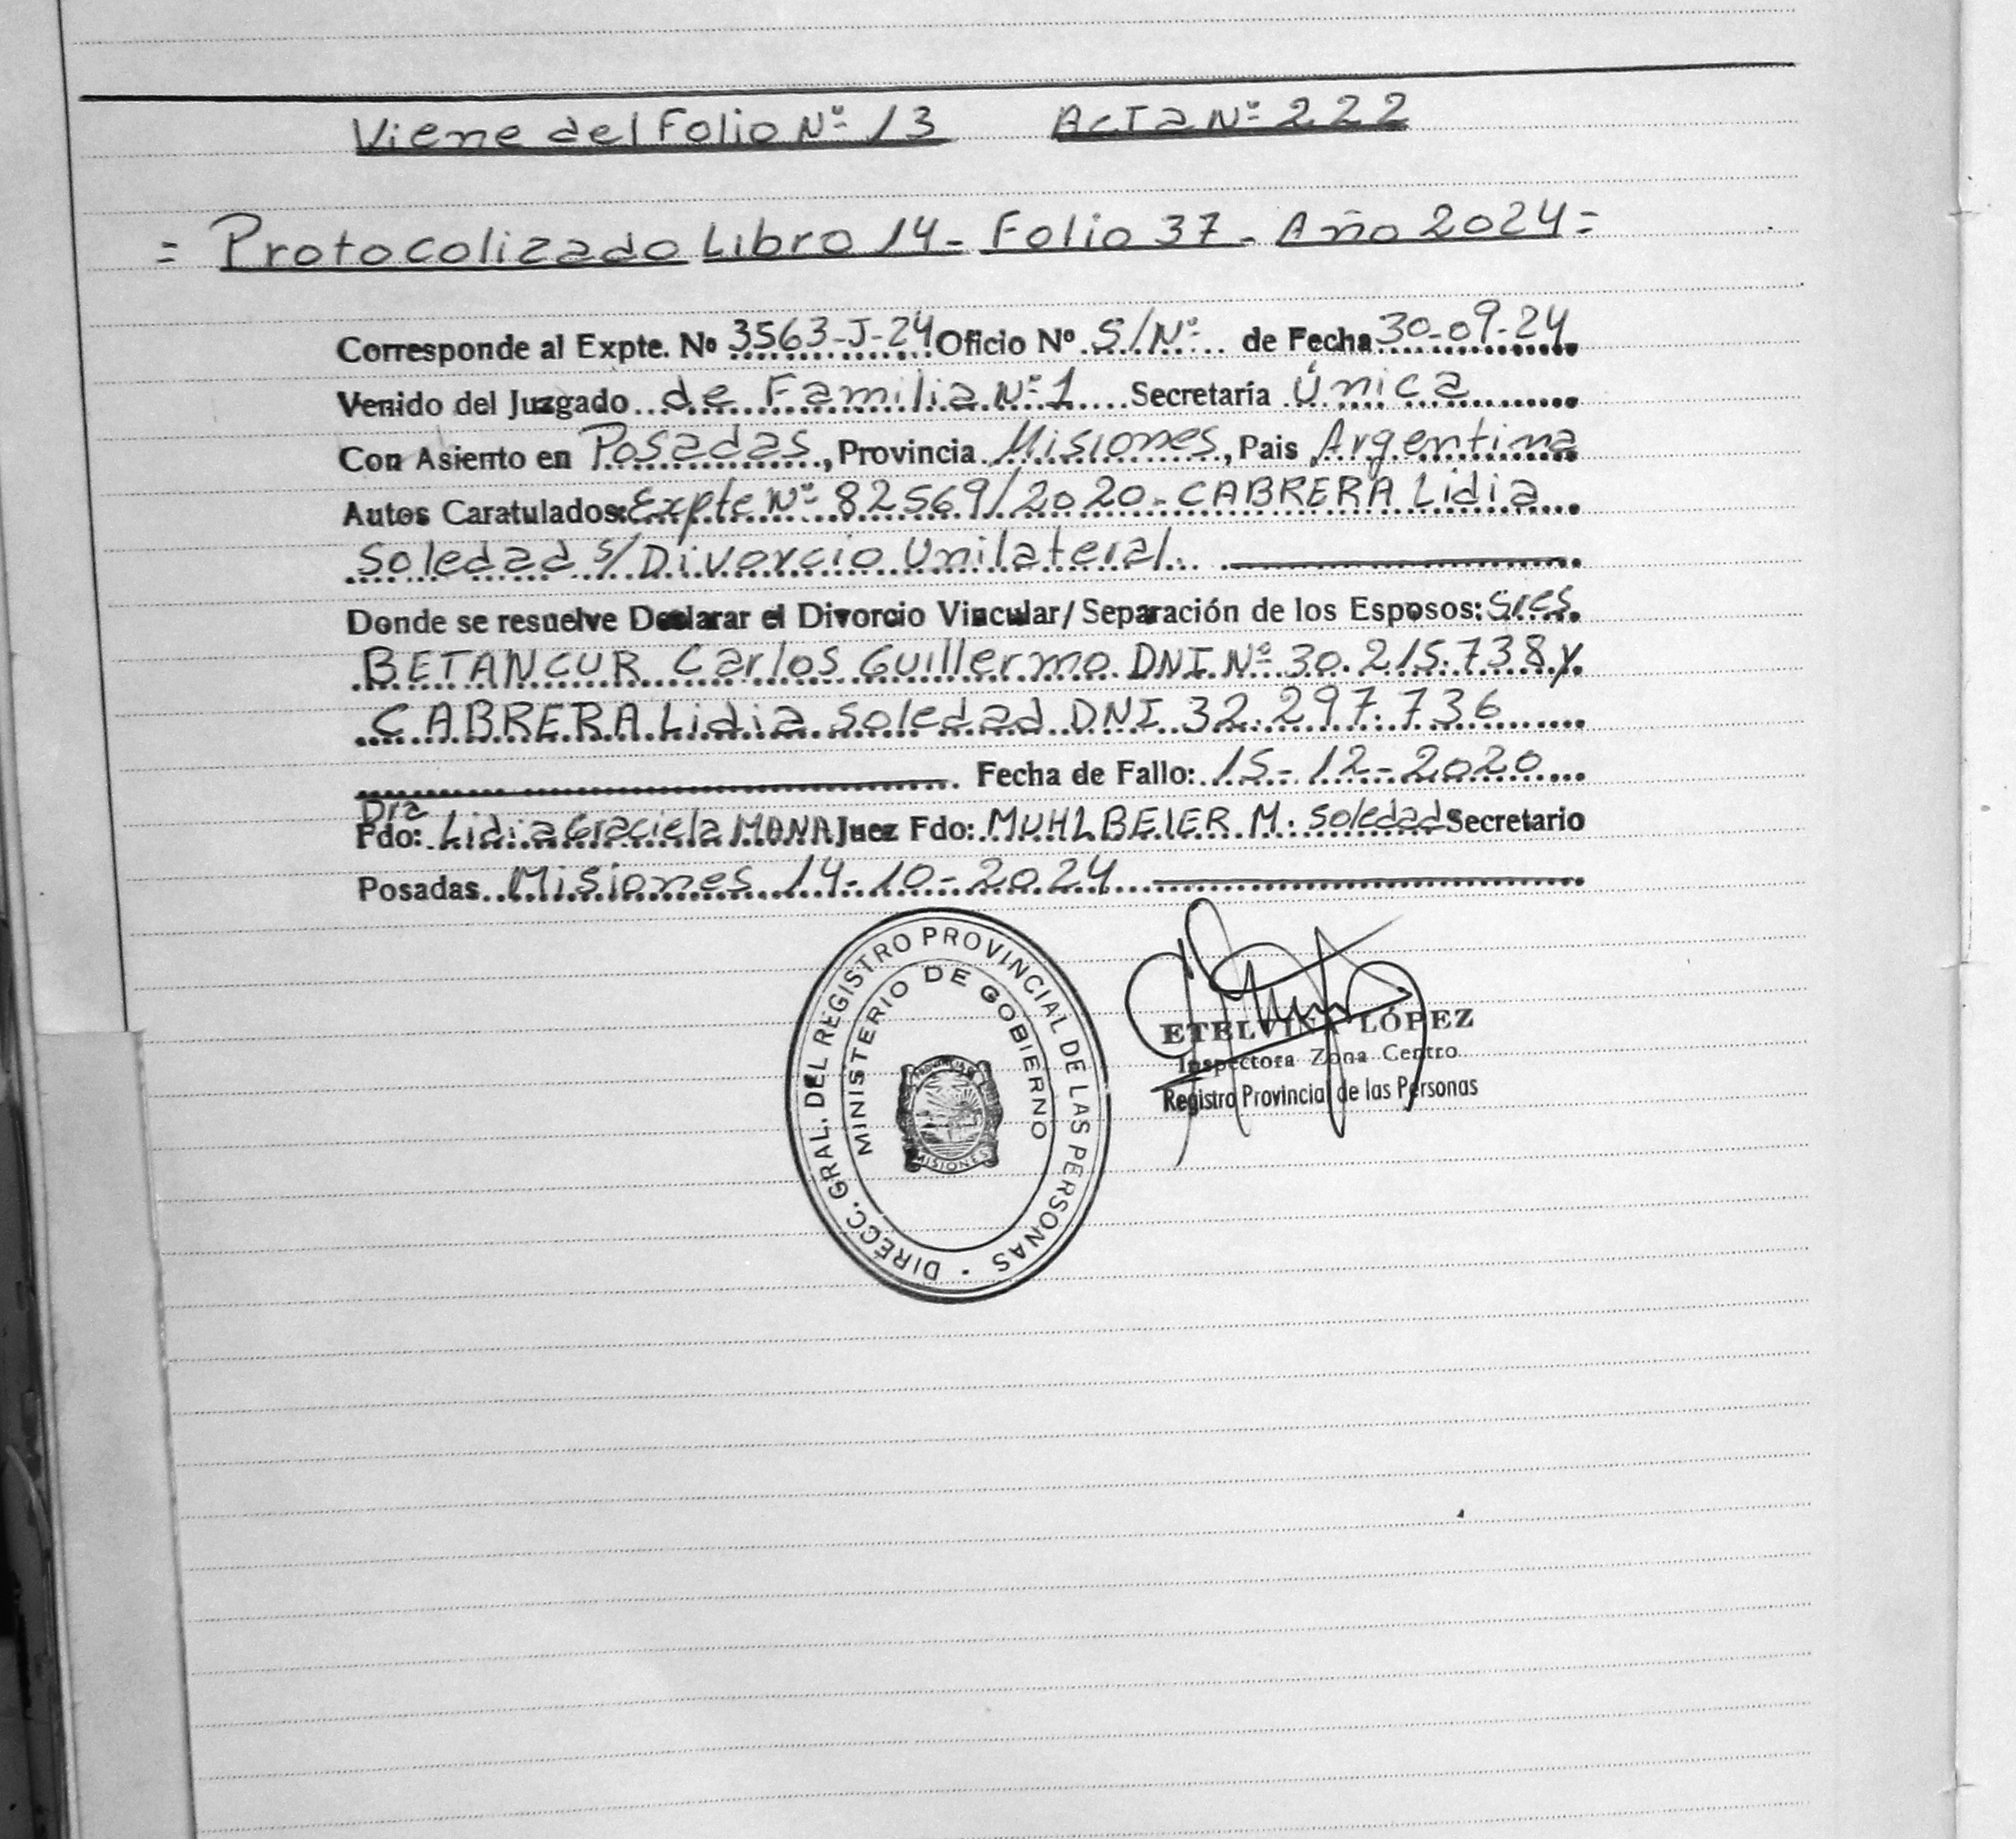 Viene del Folio Nº 13 Acta Nº 222
= Protocolizado Libro 14 - Folio 37 - Año 2024 =
Corresponde al Expte. Nº 3563-J-24 Oficio Nº S/Nº de Fecha 30-09-24
Venido del Juzgado de Familia Nº 1 Secretaría Única
Con Asiento en Posadas, Provincia Misiones, Pais Argentina
Autos Caratulados: Expte Nº 82569/2020 - CABRERA Lidia
Soledad s/ Divorcio Unilateral.
Donde se resuelve Declarar el Divorcio Vincular/ Separación de los Esposos: Sres.
BETANCUR Carlos Guillermo DNI Nº 30.215.738 y
CABRERA Lidia Soledad DNI 32.297.736
Fecha de Fallo: 15-12-2020
Dra
Fdo: Lidia Graciela MONA Juez Fdo: MUHLBEIER M. Soledad Secretario
Posadas Misiones 14-10-2024
DIRECC. GRAL. DEL REGISTRO PROVINCIAL DE LAS PERSONAS
MINISTERIO DE GOBIERNO
PROVINCIA DE
MISIONES
ETELVINA LÓPEZ
Inspectora Zona Centro
Registro Provincial de las Personas